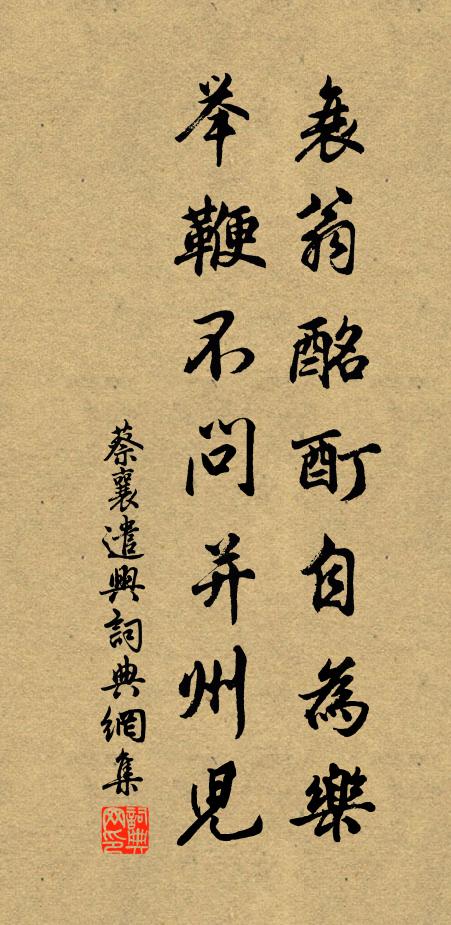 衰翁酩酊自為樂
举鞭不問并州兒
蔡襄遣興詞典網集
詞典網印